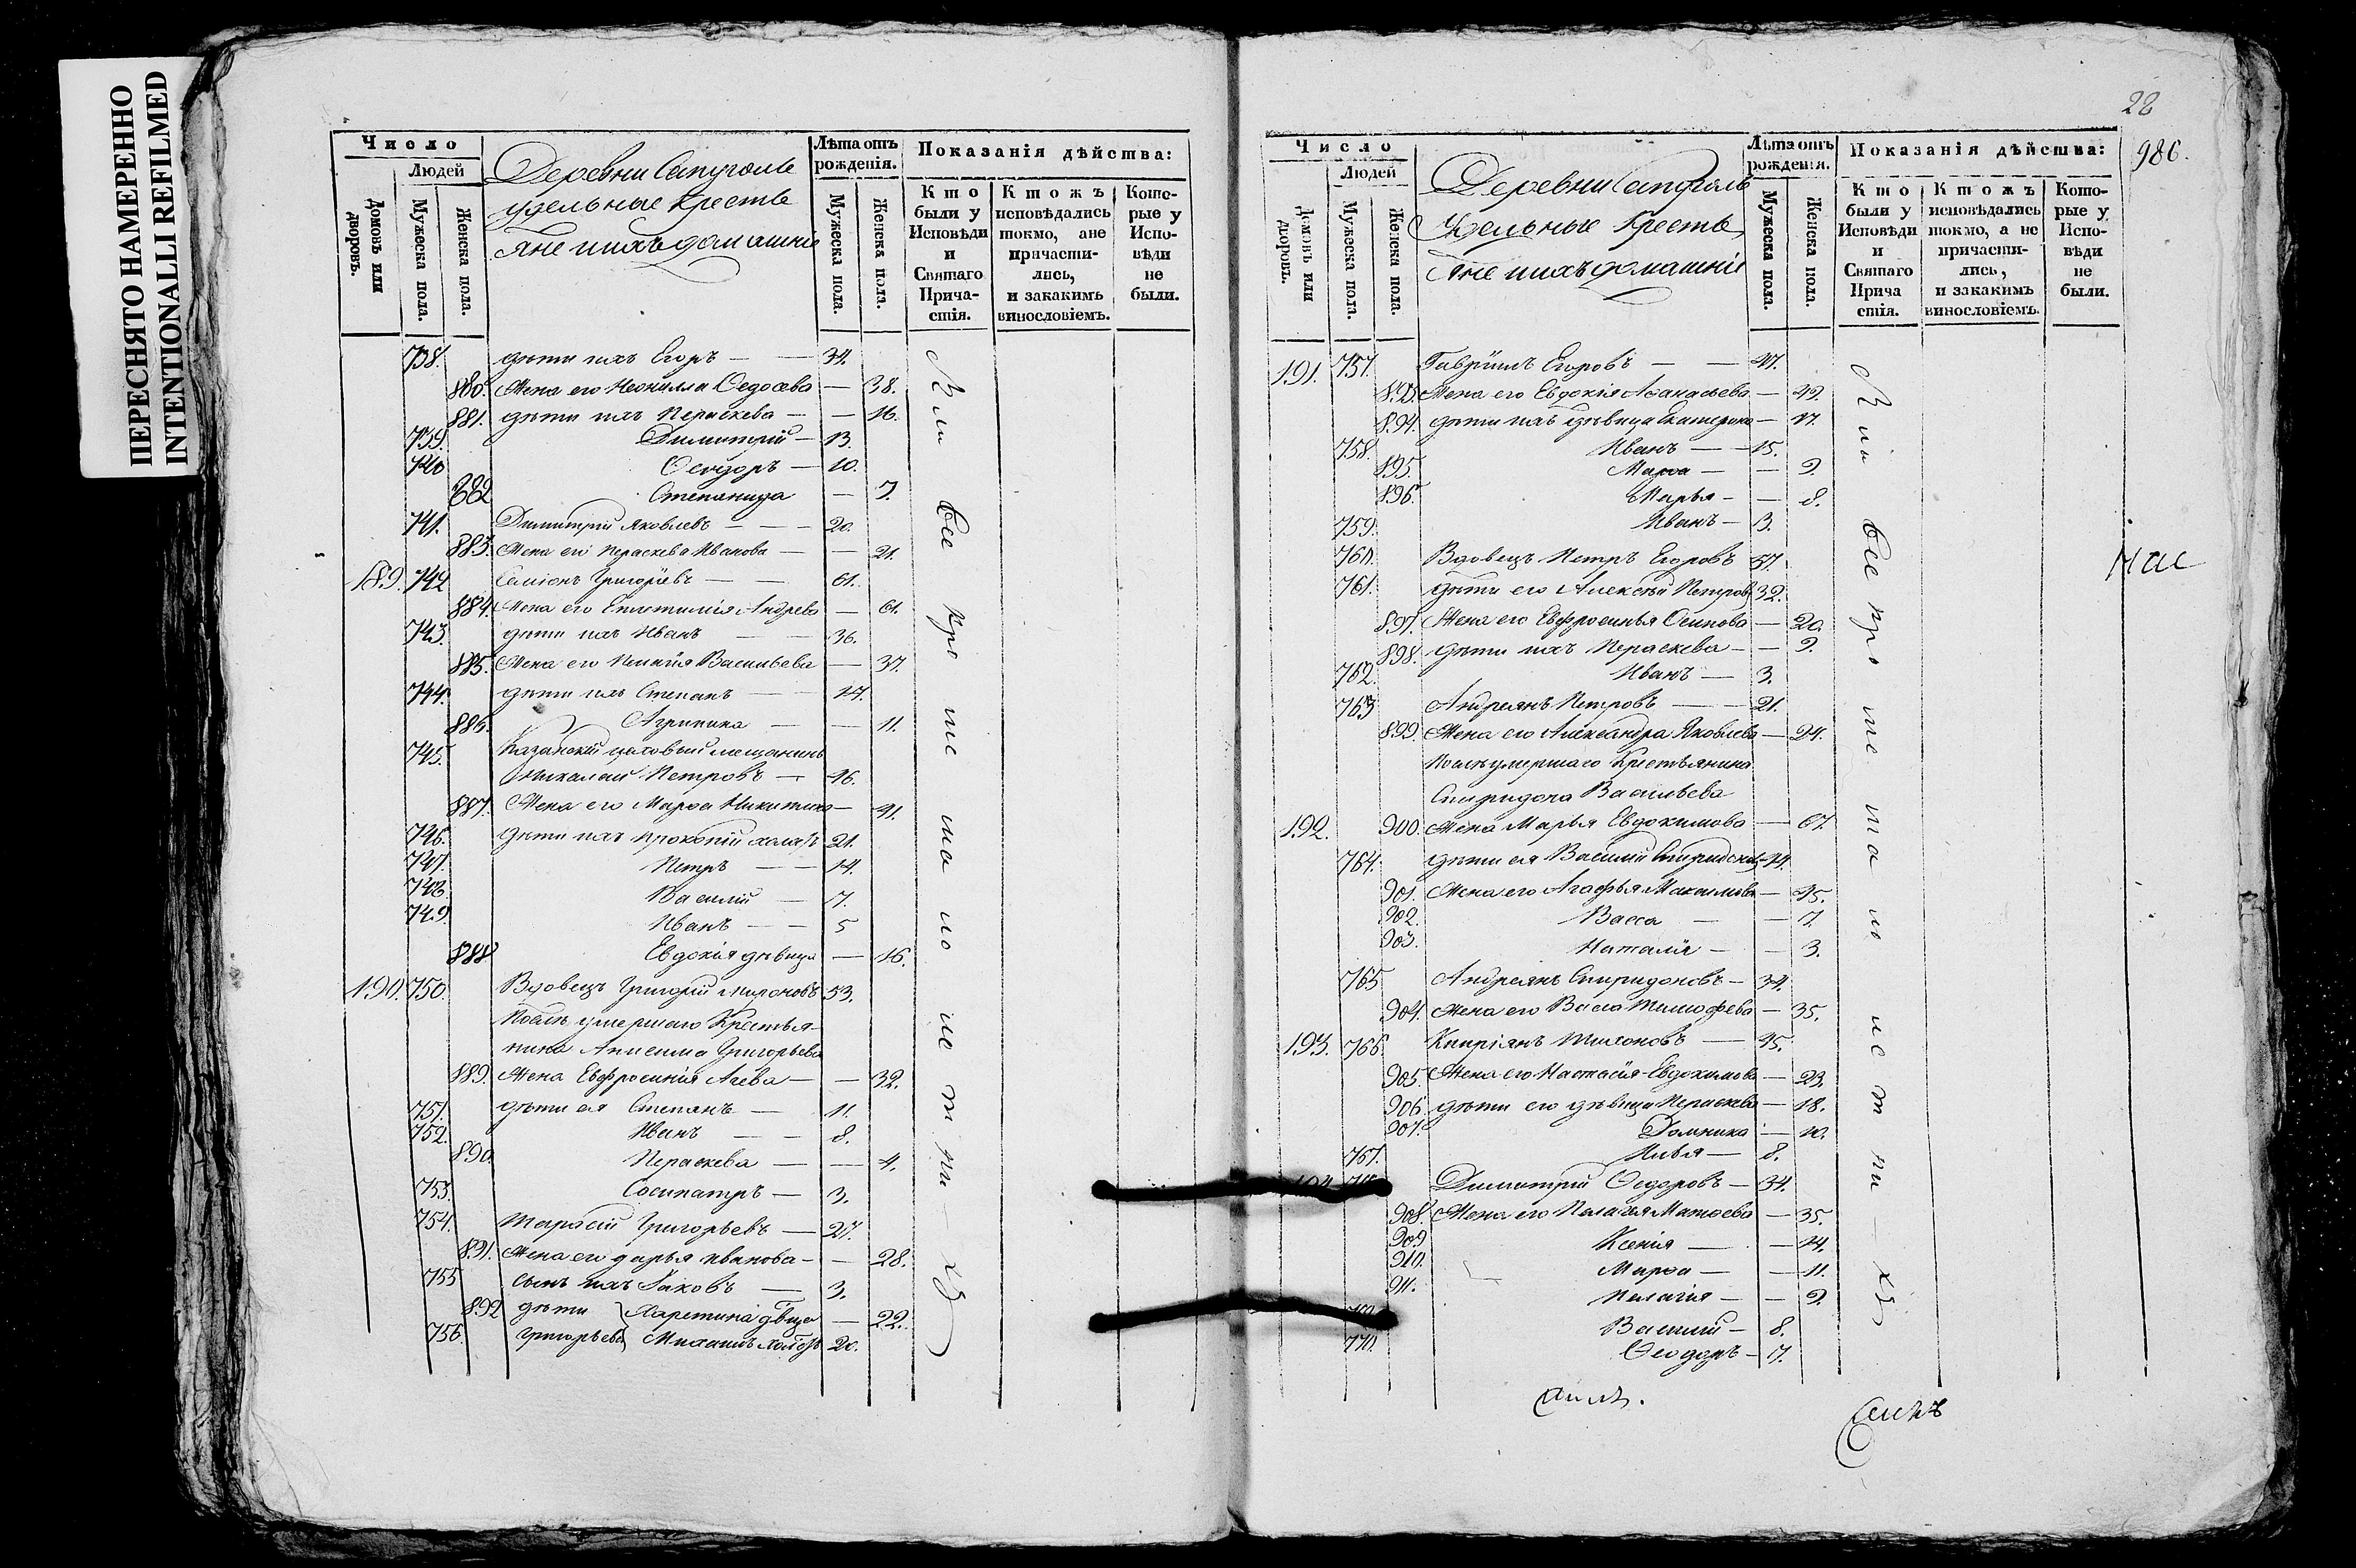 ПЕРЕСНЯТО НАМЕРЕННО
INTENTIONALLI REFILMED
Число
Людей
Домовъ или дворовъ.
Мужеска пола.
Женска пола.
Деревни
удельные Кресть
яне и ихъ домашніе
Лѣта отъ рожденія.
Мужеска пола.
Женска пола.
Показанія дѣйства:
Кто были у Исповѣди и Святаго Прича-стія.
Ктожъ исповѣдались токмо, а не причасти-лись, и закакимъ винословіемъ.
Кото-рые у Испо-вѣди не были.
738. дѣти ихъ Егоръ — 34.
880. Жена его Неонилла Ѳедосѣева — 38.
881. дѣти ихъ Параскева — 16.
739. Димитрій — 13.
740 Ѳеодоръ — 10.
882 Степанида — 7.
741. Димитрій Яковлевъ — 20.
883. Жена его Параскева Иванова — 21.
189. 742 Симіонъ Григорьевъ — 61.
884. Жена его Андрева — 61.
743. дѣти ихъ Иванъ — 36.
885. Жена его Пелагія Васильева — 37.
744. дѣти ихъ Степанъ — 14.
886. Агрипина — 11.
745. Казанскій цеховый мещанинъ
Николай Петровъ — 46.
887. Жена его Марѳа Никитина — 41.
746. дѣти ихъ Прокопій холостъ 21.
747. Петръ — 14.
748. Василій — 7.
749. Иванъ — 5
888 Евдокія дѣвица — 16.
190. 750. Вдовецъ Григорій Мироновъ 53.
Послѣ умершаго Крестья-
нина Григорьева
889. Жена Евфросинія — 32.
751. дѣти ея Степанъ — 11.
752. Иванъ — 8.
890. Параскева — 4.
753. Сосипатръ — 3.
754. Тарасій Григорьевъ — 27.
891. Жена его дарья иванова — 28.
755 сынъ ихъ Іаковъ — 3.
892 дѣти Харетина дѣвца — 22.
756. Григорьевы Михаилъ холостъ 20.
все
22
986.
Число
Людей
Домовъ или дворовъ.
Мужеска пола.
Женска пола.
Деревни
Удельные Кресть
яне и ихъ домашніе
Лѣта отъ рожденія.
Мужеска пола.
Женска пола.
Показанія дѣйства:
Кто были у Исповѣди и Святаго Прича стія.
Ктожъ исповѣдались токмо, а не причасти-лись, и закакимъ винословіемъ.
Кото-рые у Испо-вѣди не были.
191. 757. Гавріилъ Егоровъ — 47.
893. Жена его Евдокія Аѳанасьева — 49.
894. дѣти ихъ дѣвица Екатерина — 17.
758. Иванъ — 15.
895. Марѳа — 9.
896. Марья — 8.
759. Иванъ — 3.
760. Вдовецъ Петръ Егоровъ 57.
761. дѣти его Алексѣй Петровъ 32.
897. Жена его Евфросинья Осипова — 20.
898. дѣти ихъ Параскева — 9.
762. Иванъ — 3.
763 Андреянъ Петровъ — 21.
899. Жена его Александра Яковлева — 24.
Послѣ умершаго Крестьянина
Спиридона Васильева
192. 900. Жена Марья Евдокимова — 67.
764. дѣти ея Василій Спиридоновъ 44.
901. Жена его Агафья Максимова — 45.
902. Васса — 7.
903. Наталія — 3.
765 Андреянъ Спиридоновъ — 34.
904. Жена его Васса Тимофева — 35.
193. 766. Кипріянъ Тихоновъ — 45.
905. Жена его Настасія Евдокимова — 23.
906. дѣти его дѣвица Параскева — 18.
907. Домника — 10.
767. Илья — 8.
Димитрій Ѳедоровъ — 34.
908. Жена его Пелагія Матѳеева — 35.
909 Ксенія — 14.
910. Марѳа — 11.
911. Пелагія — 9.
Василій — 8.
770. Ѳеодоръ — 7.
все